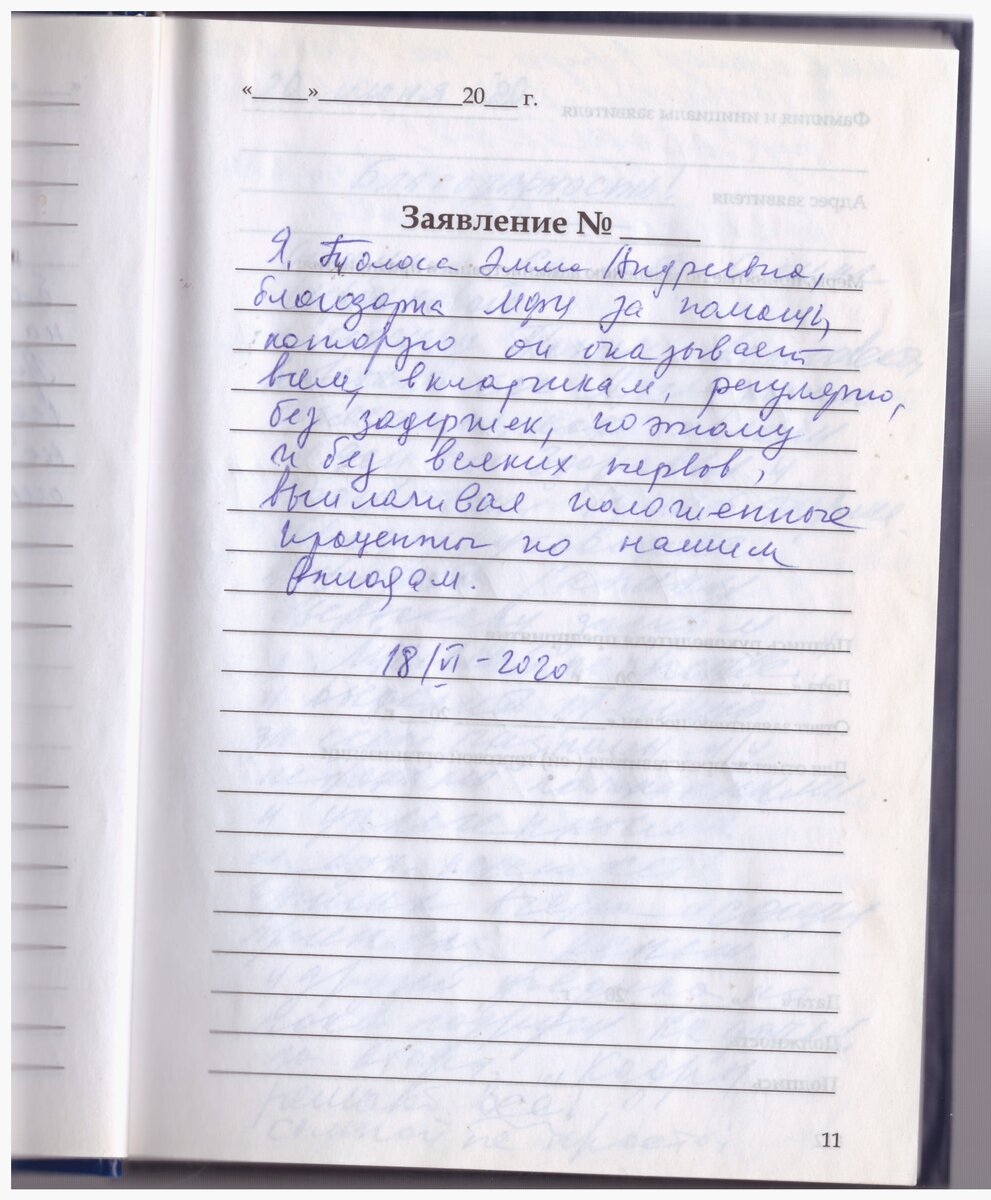 «____»____________20___ г.
Заявление № _____
Я, Толоса Эмма Андреевна,
благодарна МФЦ за помощь,
которую он оказывает
всем, вкладчикам, регулярно,
без задержек, поэтому
и без всяких нервов,
выплачивая положенные
проценты по нашим
вкладам.
18/VI-2020
11